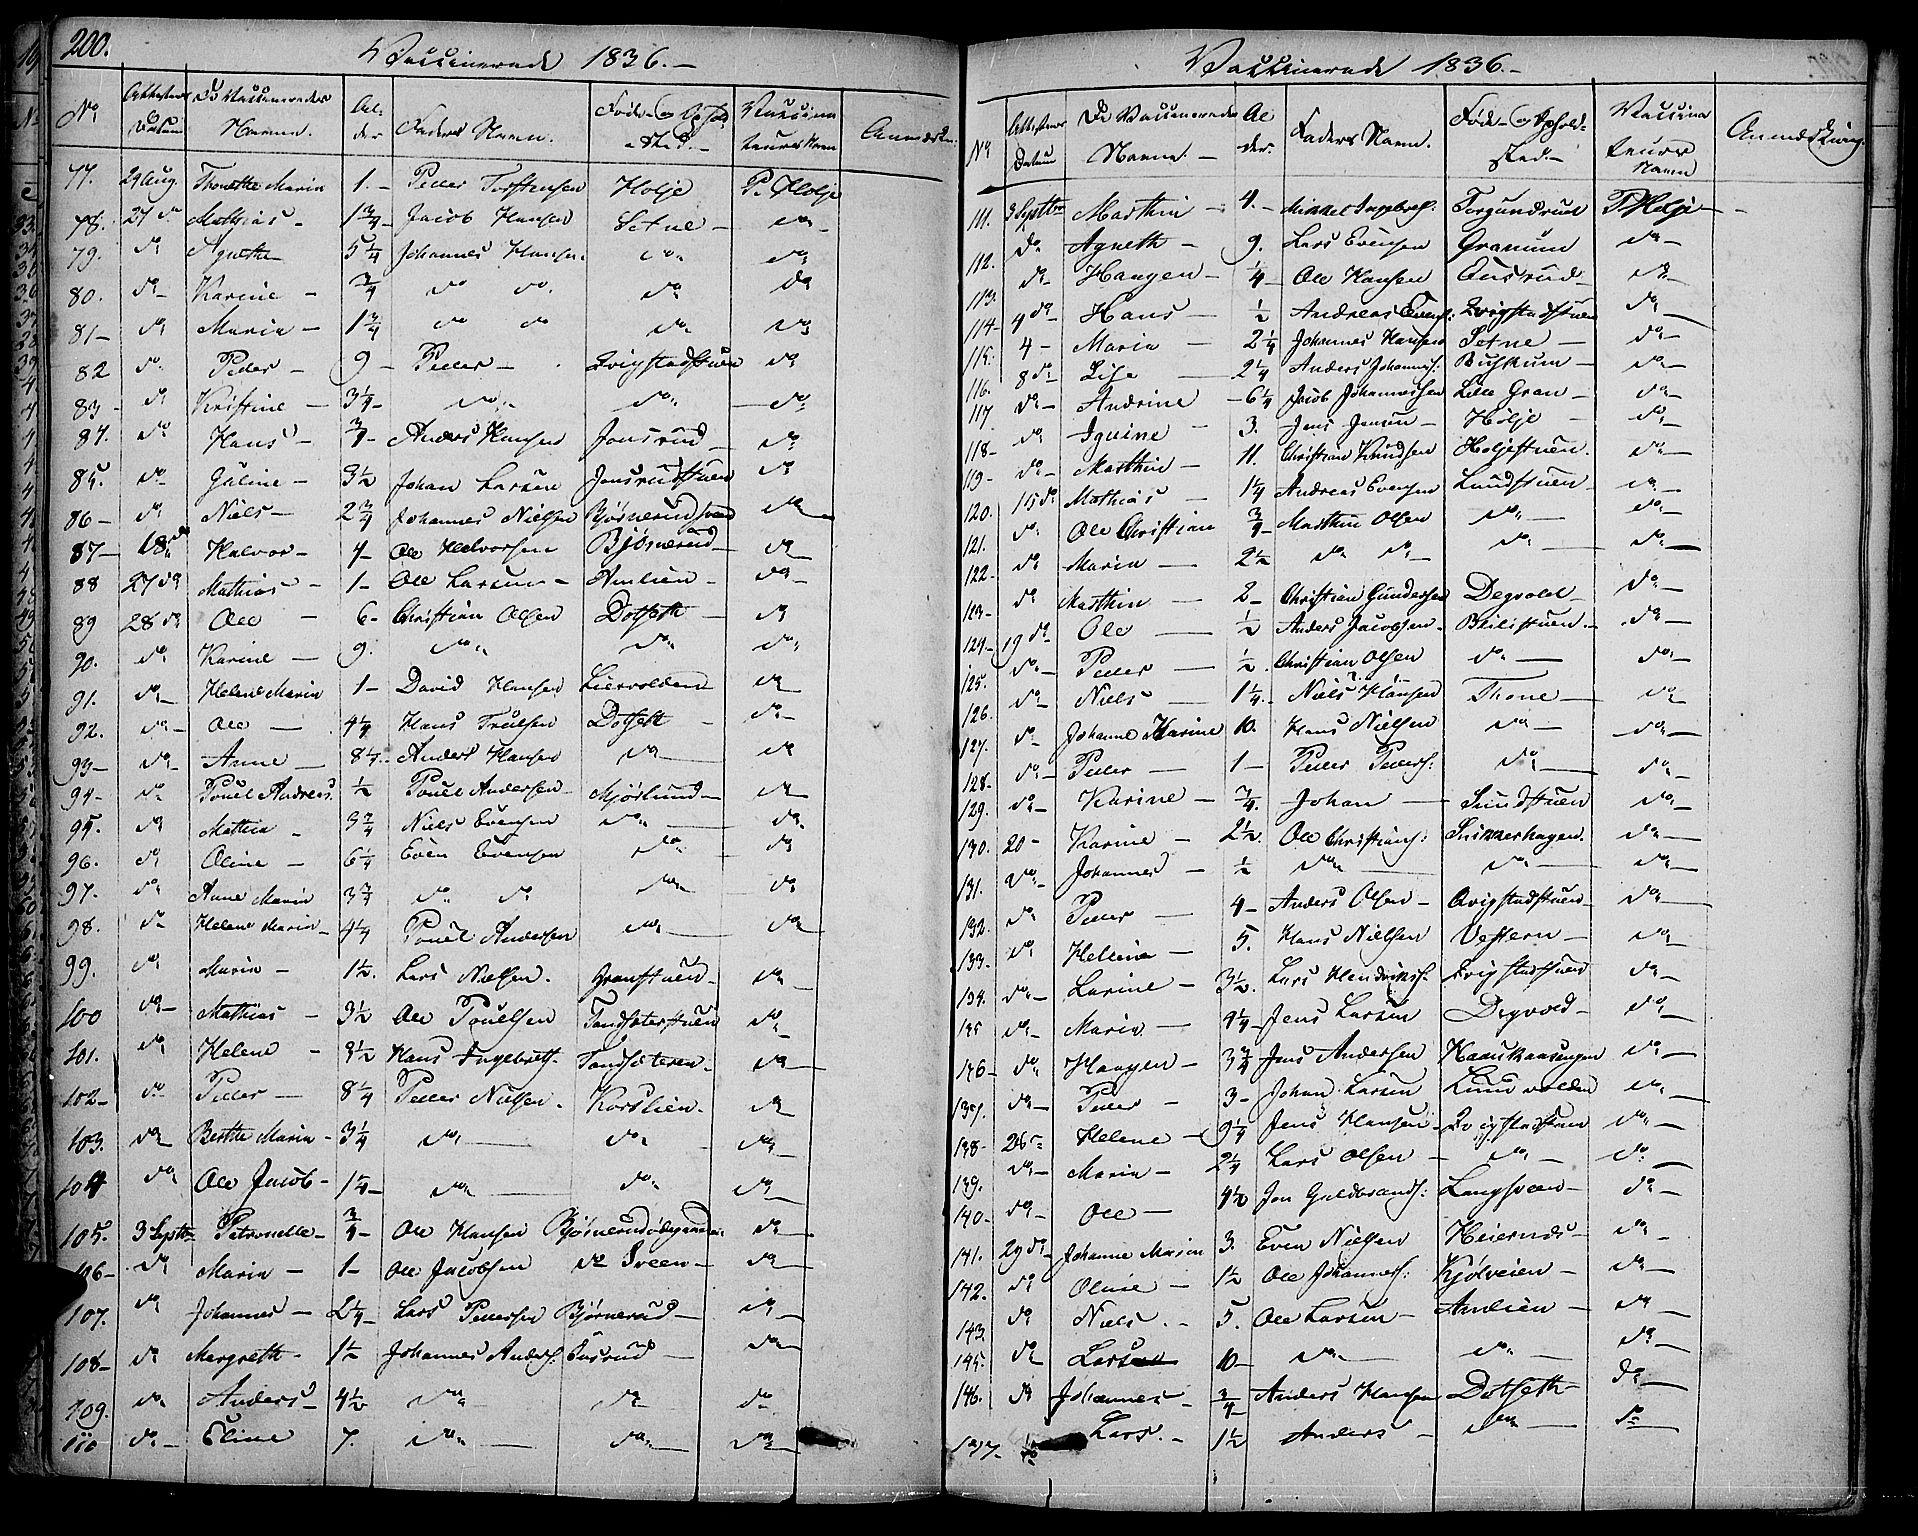 200.
Vaccinerede 1836.-
No | Attesternes Datum | De Vaccineredes Navne. | Al-der | Faders Navn. | Føde- og Ophold-Sted.- | Vaccina-teurens Navn | Anmærkn:
77. 24 Aug. Thorethe Maria 1.- Peder Torstensen Holje P. Holje
78. 27 do Mathias - 1 3/4 - Jacob Hansen Setne - do
79. do Agnethe 5 1/4 Johannes Hansen do do
80. do - Karine - 3/4 do do do do
81 - do Maria - 1 3/4 do do do do
82 do Peder - 9 - Peder - Qvigstadstuen do
83 - do Kristine - 3 1/4 - do do do
84. do Hans - 3/4 - Anders Hansen Jonsrud do
85. do Juline - 3 1/2 Johan Larsen Jonsrudstuen do
86 - do Niels - 2 3/4 Johannes Nielsen do
87 - 18 do Halvor - 4 - Ole Halvorsen Bjørnerud do
88 27 do Mathias - 1 - Ole Larsen - Amlien - do -
89 28 do Ole - 6 - Christian Olsen Dotseth - do
90. do Karine - 9. do do do
91. do - Helene Maria 1 - David Hansen Liervolden do
92. do - Ole - 4 1/4 Hans Truelsen Dotseth - do -
93 - do - Anne - 8 1/4 - Anders Hansen do do
94 - do Pouel Andreas. 1/2 Pouel Andersen - Mjørlund - do
95. do Mathea - 3 3/4 Niels Evensen do do
96. do Oline - 6 1/4 Even Evensen do do
97. do Anne Maria 3 3/4 do do do do
98. do Helene Maria - 4 1/4 Pouel Andersen do do
99. do Maria - 1 1/2 Lars Nielsen. Granstuen - do
100 do - Mathias - 3 1/2 Ole Pouelsen do
101. do Helene - 3 1/2 Hans Ingebrets. do
102 - do Peder - 8 1/4 Peder Nielsen - Korslien - do
103. do Berthe Maria - 3 1/4 do do do
104 do Ole Jacob - 1 1/4 - do do do
105. 3 Septbr Petronelle - 3/4 - Ole Hansen do
106 - do Maria - 1 - Ole Jacobsen do Sveen - do
107. do Johannes - 2 1/4 - Lars Pedersen Bjørnerud - do
108 - do Margreth - 1 1/2 Johannes Anders: Eusrud do
109. do Anders - 4 1/2 do do do
110 do - Eline 7. do do do
Vaccinerede 1836.-
No | Attesternes Datum | De Vaccineredes Navne.- | Al-der. | Faders Navn. | Føde- og Ophold-sted.- | Vaccina-teurens Navn | Anmærkning.
111. 3 Septbr Marthin - 4.- Mikkel Ingebrets: Torgundrud P. Holje -
112. do Agneth - 9. Lars Evensen Granum do -
113. do Haagen - 1/4 Ole Hansen do -
114 - 4 do Hans - 1/2 Andreas Evens: Qvigstadstuen do
115. 4 - Maria - 2 1/4 Johannes Hansen Setne - do -
116. 8 do Lise - 2 1/4 Anders Johannes: - do -
117 do - Andrine - 6 1/4 Jacob Johannessen Lille Gran - do
118 - do 3. Jens Jensen - Holje - do
119 - do - Marthin - 11. Christian Knudsen Holjestuen. do
120. 15 do Mathias - 1 1/4 Andreas Evensen Lundstuen do -
121. do Ole Christian 3/4 Marthin Olsen do - do
122 - do Maria - 2 1/2 do do do do
123 - do Marthin - 2 - Christian Gundersen Degvold - do -
124 - 19 do Ole - 1/2 Anders Jacobsen - do -
125. do - Peder - 1/2 Christian Olsen do - do -
126. do Niels - 1 1/4 - Niels Hansen Thone - do -
127. do Johanne Karine 10. Hans Nielsen do do
128. do - Peder - 1 - Peder Peders: do do
129. do - Karine - 3/4. Johan - Lundstuen do -
130. 20 - Karine - 2 1/2. Ole Christians: Snikkerhagen. do -
131. do - Johannes - 1/2 do do do
132. do Peder - 4 - Anders Olsen - Qvigstadstuen do
133. do Hellene - 5. Hans Nielsen Vestern - do -
134. do - Larine - 3 1/2. Lars Hendriks: Qvigstadstuen do
135 do - Maria - 9 1/4 - Jens Larsen Degvold - do
136 - do Haagen - 3 3/4 Jens Andersen do -
137. do - Peder - 3 - Johan Larsen Lundvolden do
138 - 26 Helene - 9 1/4 Jens Hansen - Qvigstadstuen do
139. do - Maria - 2 1/4 Lars Olsen - do - do
140 - do Ole - 4 1/2 Jon Guldbrands: - do -
141. 29 do Johanne Maria 3. Even Nielsen do -
142. do Oline - 1 1/2 Ole Johannes: Kjølveien - do
143. do Niels.- 5. Ole Larsen - Amlien - do -
145. do Lars 10 - do do do
146. do Johannes - 3/4 - Anders Hansen Dotseth do
147. Lars.- 1 1/2 Anders - do do